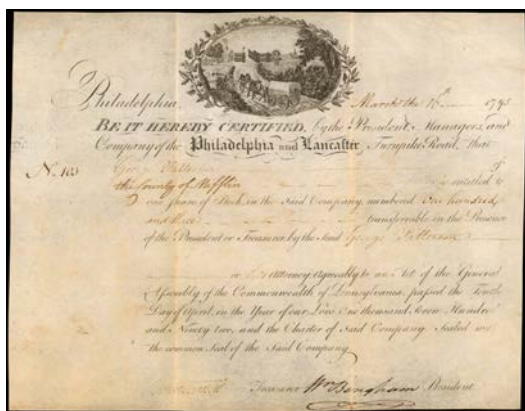 Philadelphia, March the 16th 1795
BE IT HEREBY CERTIFIED, by the President, Managers, and
Company of the Philadelphia and Lancaster Turnpike Road, that
No. 103 George
the County of Mifflin is entitled to
one Share of Stock in the Said Company, numbered One hundred
and three transferable in the Presence
of the President or Treasurer by the Said George Patterson
or his Attorney Agreeably to an Act of the General
Assembly of the Commonwealth of Pennsylvania, passed the Ninth
Day of April, in the Year of our Lord One thousand Seven Hundred
and Ninety two, and the Charter of Said Company. Sealed with
the common Seal of the Said Company.
Treasurer Wm Bingham President